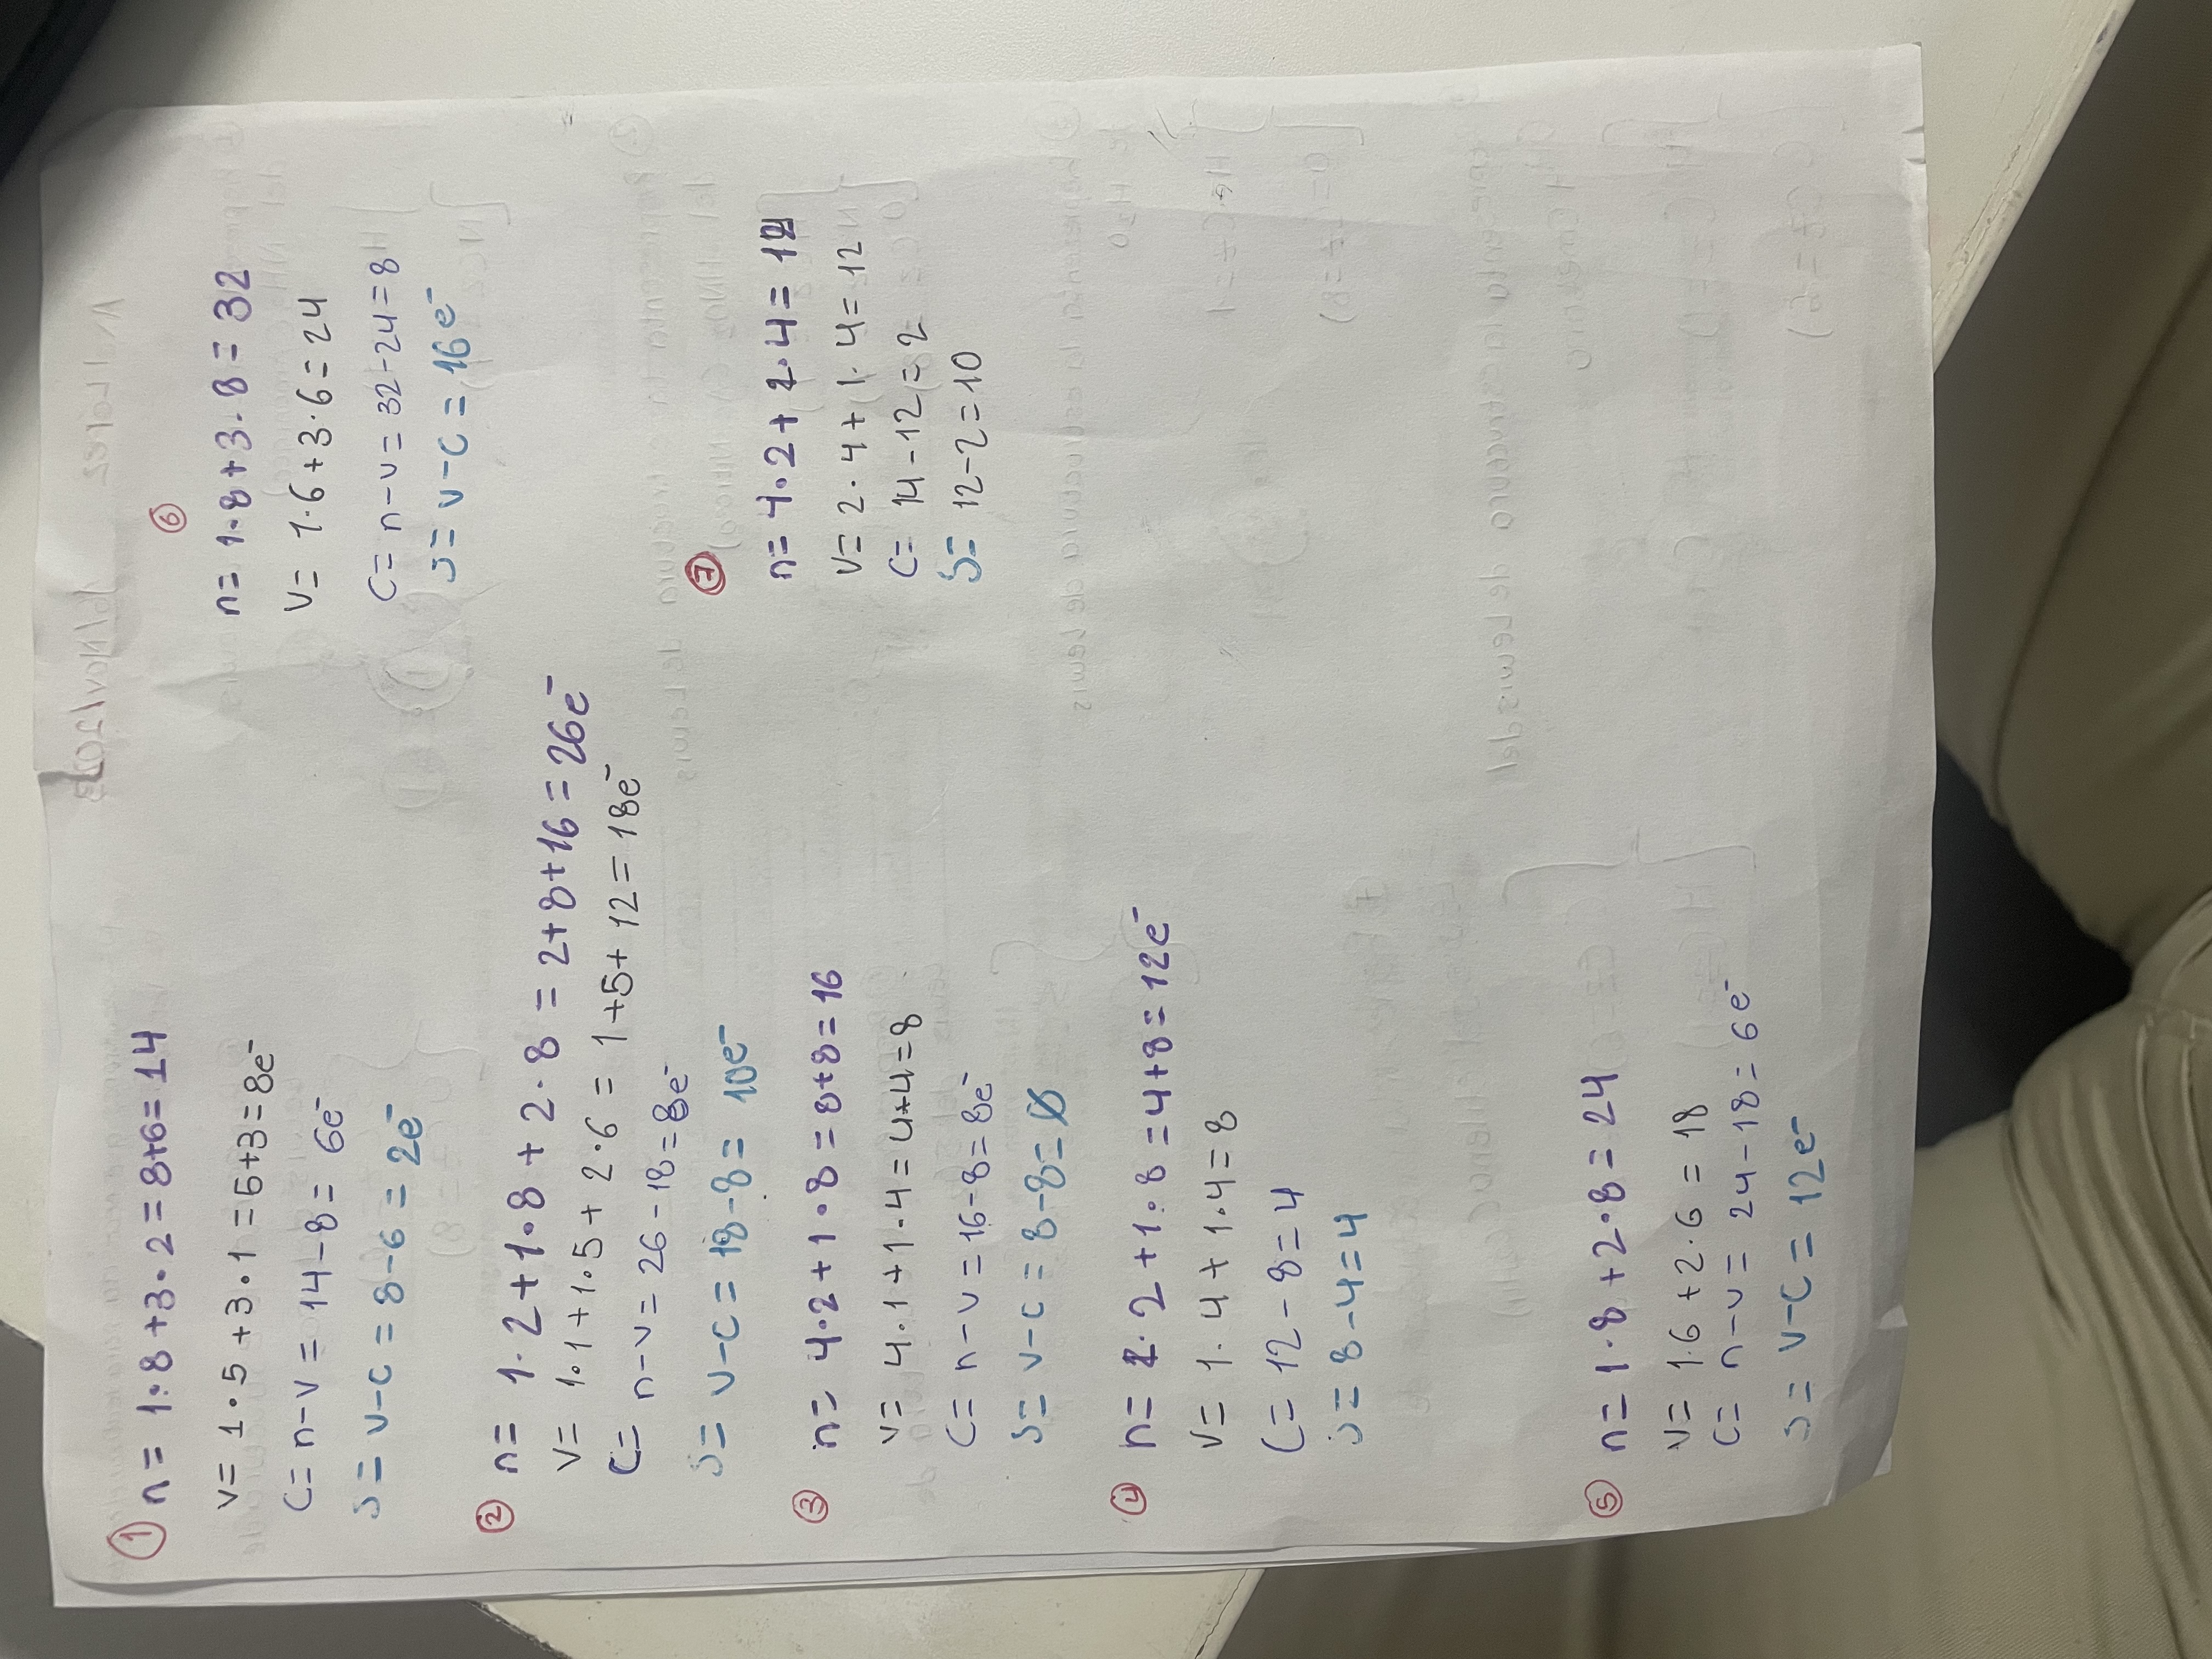 ①
n= 1·8+3·2=8+6=14
v= 1·5+3·1=5+3=8e⁻
C= n-v= 14-8= 6e⁻
S= v-c= 8-6= 2e⁻
②
n= 1·2+1·8+2·8= 2+8+16=26e⁻
v= 1·1+1·5+2·6= 1+5+12=18e⁻
C= n-v= 26-18=8e⁻
S= v-c= 18-8= 10e⁻
③
n= 4·2+1·8=8+8=16
v= 4·1+1·4=4+4=8
C= n-v=16-8=8e⁻
S= v-c=8-8=0
④
n= 2·2+1·8=4+8=12e⁻
v= 1·4+1·4=8
C= 12-8=4
S= 8-4=4
⑤
n= 1·8+2·8=24
v= 1·6+2·6=18
C= n-v= 24-18=6e⁻
S= v-c= 12e⁻
⑥
n= 1·8+3·8=32
v= 1·6+3·6=24
C= n-v=32-24=8
S= v-c= 16e⁻
⑦
n= 4·2+2·4=
v= 2·4+1·4=12
C= 14-12=2
S= 12-2=10